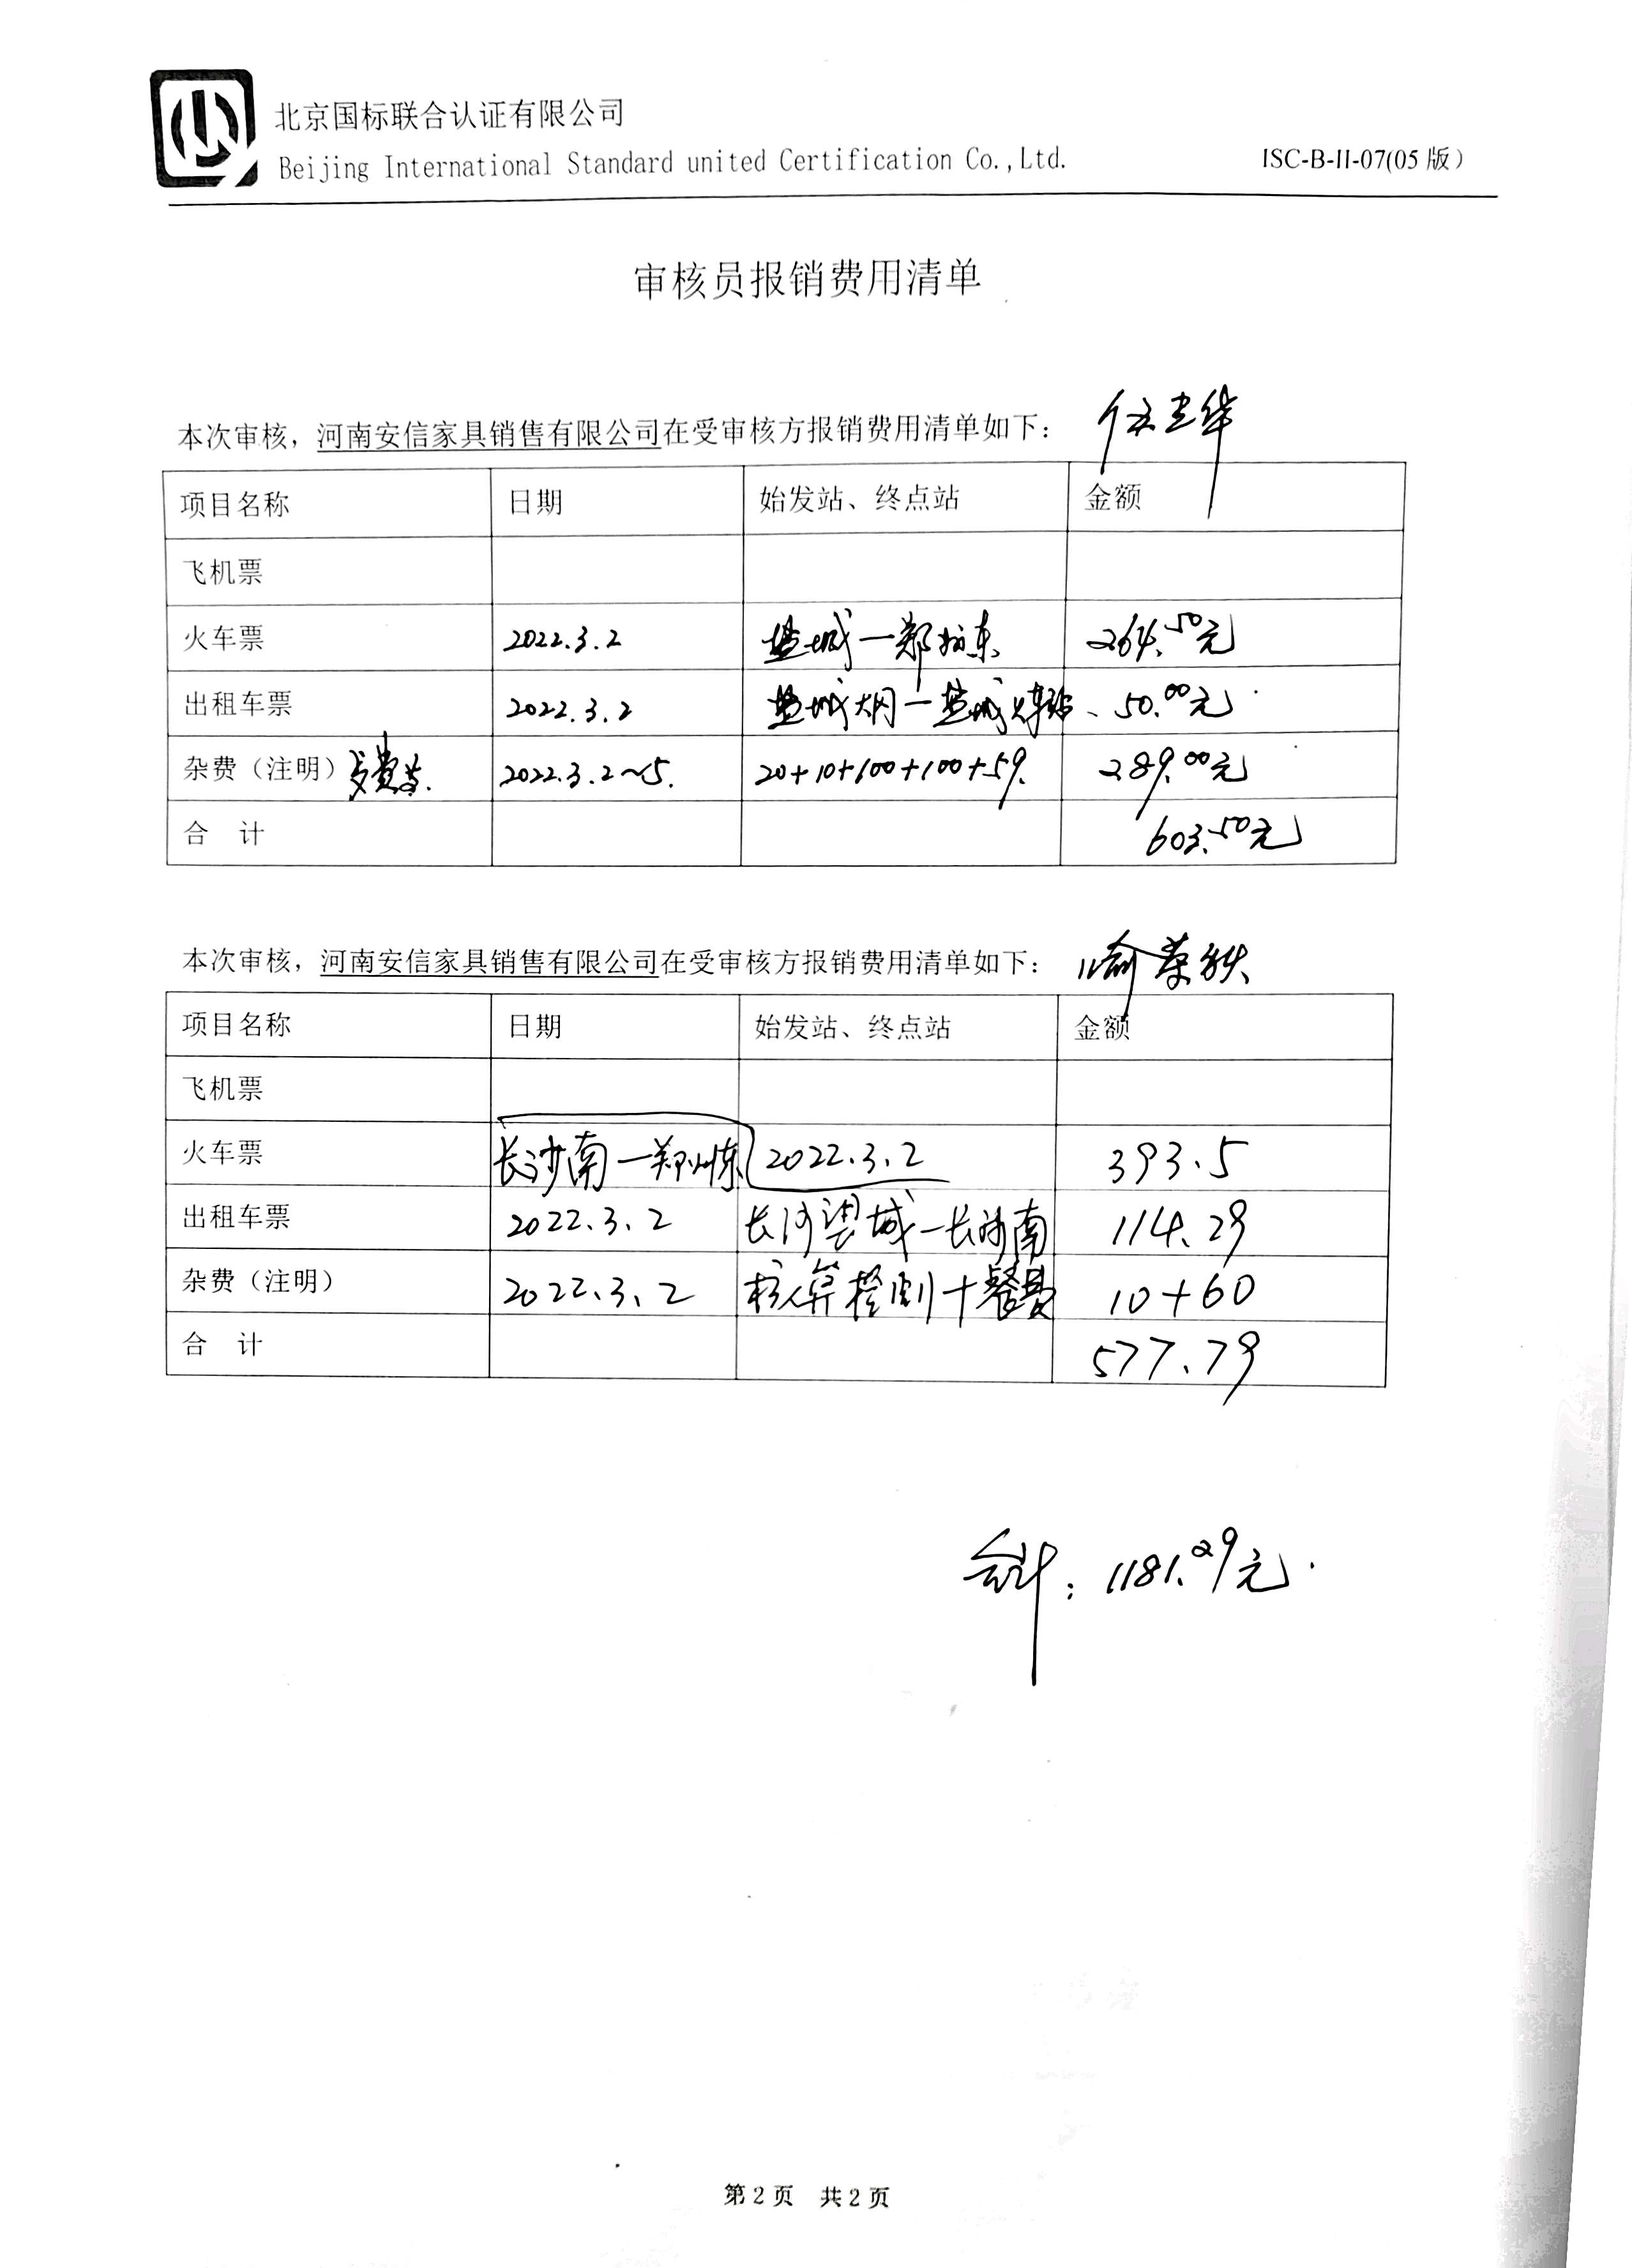 北京国标联合认证有限公司
Beijing International Standard united Certification Co.,Ltd.
ISC-B-II-07(05版)
审核员报销费用清单
本次审核，河南安信家具销售有限公司在受审核方报销费用清单如下：
项目名称 日期 始发站、终点站 金额
飞机票
火车票 2022.3.2 盐城—郑州东 264.50元
出租车票 2022.3.2 盐城大冈—盐城火车站 50.00元
杂费（注明） 2022.3.2~5. 20+10+100+100+59. 289.00元
合 计 603.50元
本次审核，河南安信家具销售有限公司在受审核方报销费用清单如下：
项目名称 日期 始发站、终点站 金额
飞机票
火车票 长沙南—郑州东 2022.3.2 393.5
出租车票 2022.3.2 长沙望城—长沙南 114.29
杂费（注明） 2022.3.2 核算检测+餐费 10+60
合 计 577.79
合计：1181.29元.
第2页 共2页